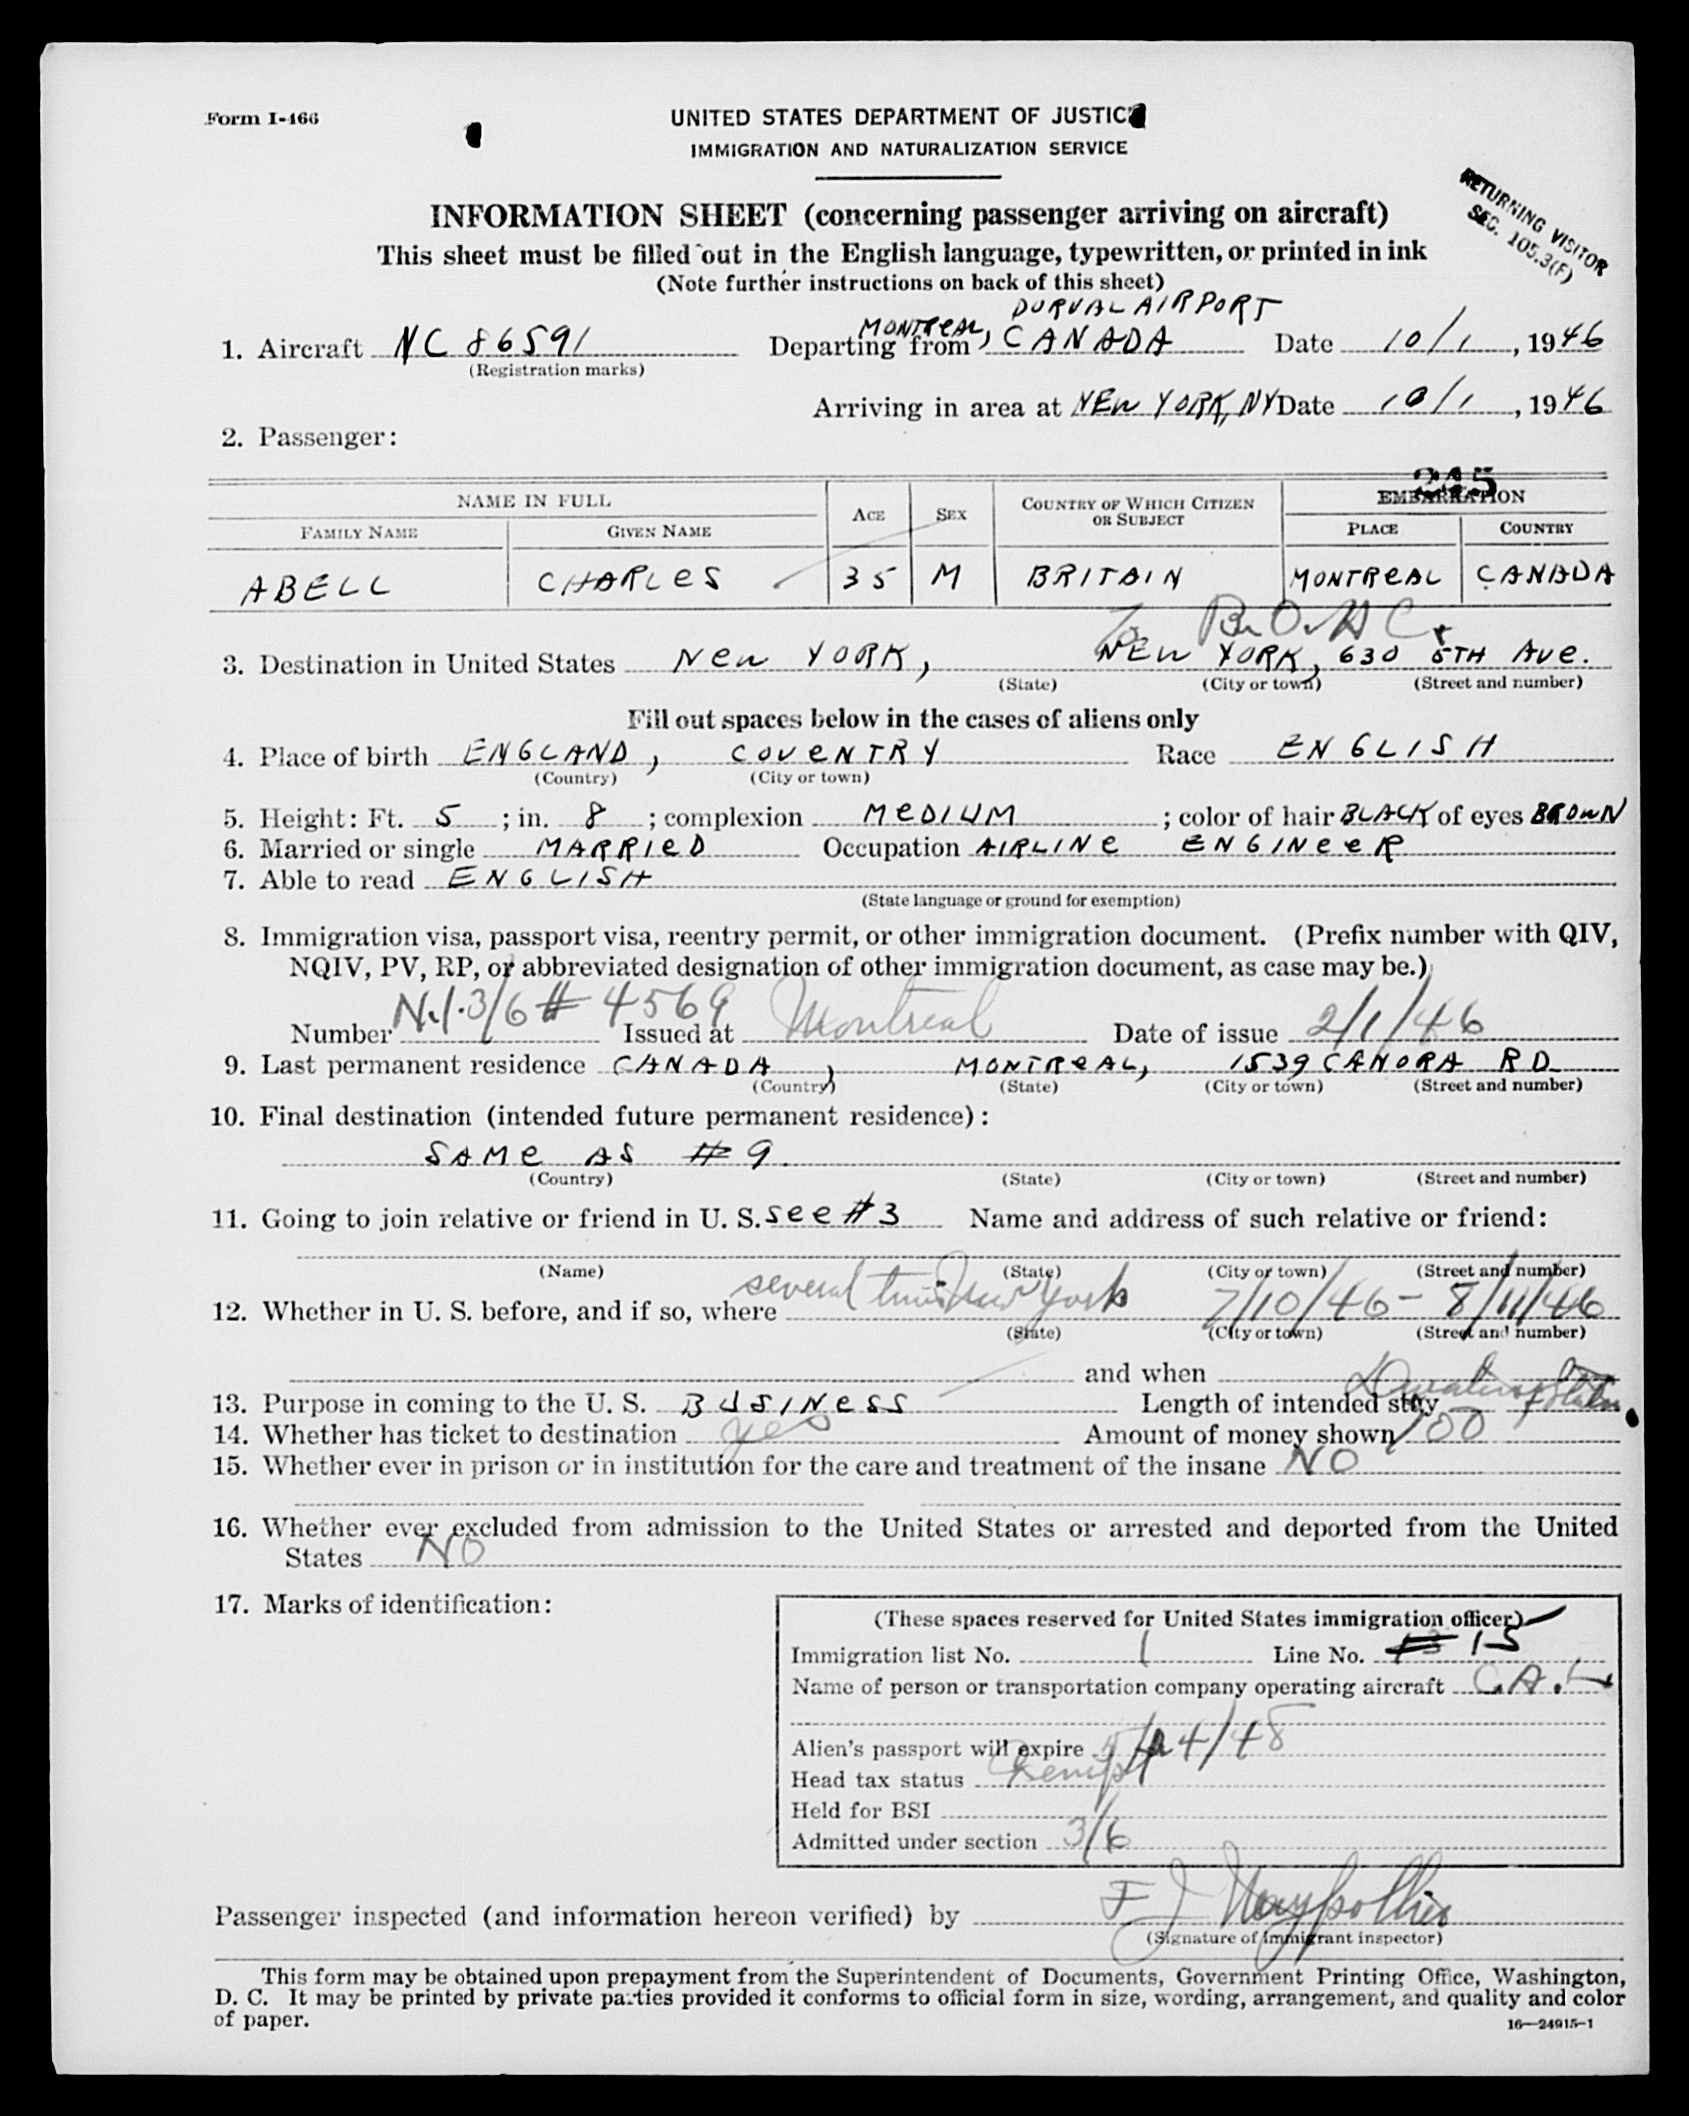 Form I-466
UNITED STATES DEPARTMENT OF JUSTICE
IMMIGRATION AND NATURALIZATION SERVICE
RETURNING VISITOR
SEC. 105.3(F)
INFORMATION SHEET (concerning passenger arriving on aircraft)
This sheet must be filled out in the English language, typewritten, or printed in ink
(Note further instructions on back of this sheet)
DORVAL AIRPORT
1. Aircraft NC 86591 Departing from MONTREAL, CANADA Date 10/1, 1946
(Registration marks)
Arriving in area at NEW YORK, NY Date 10/1, 1946
2. Passenger:
245
NAME IN FULL AGE SEX COUNTRY OF WHICH CITIZEN OR SUBJECT EMBARKATION
FAMILY NAME GIVEN NAME PLACE COUNTRY
ABELL CHARLES 35 M BRITAIN MONTREAL CANADA
To B.O.A.C.
3. Destination in United States NEW YORK, NEW YORK, 630 5TH AVE.
(State) (City or town) (Street and number)
Fill out spaces below in the cases of aliens only
4. Place of birth ENGLAND, COVENTRY Race ENGLISH
(Country) (City or town)
5. Height: Ft. 5; in. 8; complexion MEDIUM; color of hair BLACK of eyes BROWN
6. Married or single MARRIED Occupation AIRLINE ENGINEER
7. Able to read ENGLISH
(State language or ground for exemption)
8. Immigration visa, passport visa, reentry permit, or other immigration document. (Prefix number with QIV,
NQIV, PV, RP, or abbreviated designation of other immigration document, as case may be.)
Number N.I. 3/6 # 4569 Issued at Montreal Date of issue 2/1/46
9. Last permanent residence CANADA, MONTREAL, 1539 CANORA RD
(Country) (State) (City or town) (Street and number)
10. Final destination (intended future permanent residence):
SAME AS # 9
(Country) (State) (City or town) (Street and number)
11. Going to join relative or friend in U. S. SEE # 3 Name and address of such relative or friend:
(Name) (State) (City or town) (Street and number)
12. Whether in U. S. before, and if so, where several times New York 7/10/46 - 8/11/46
(State) (City or town) (Street and number)
and when
13. Purpose in coming to the U. S. BUSINESS Length of intended stay Duration of status
14. Whether has ticket to destination yes Amount of money shown 100
15. Whether ever in prison or in institution for the care and treatment of the insane NO
16. Whether ever excluded from admission to the United States or arrested and deported from the United
States NO
17. Marks of identification:
(These spaces reserved for United States immigration officer)
Immigration list No. 1 Line No. 15
Name of person or transportation company operating aircraft C.A.L
Alien's passport will expire 24/48
Head tax status Exempt
Held for BSI
Admitted under section 3/6
Passenger inspected (and information hereon verified) by F J
(Signature of immigrant inspector)
This form may be obtained upon prepayment from the Superintendent of Documents, Government Printing Office, Washington,
D. C. It may be printed by private parties provided it conforms to official form in size, wording, arrangement, and quality and color
of paper.
16—24915-1